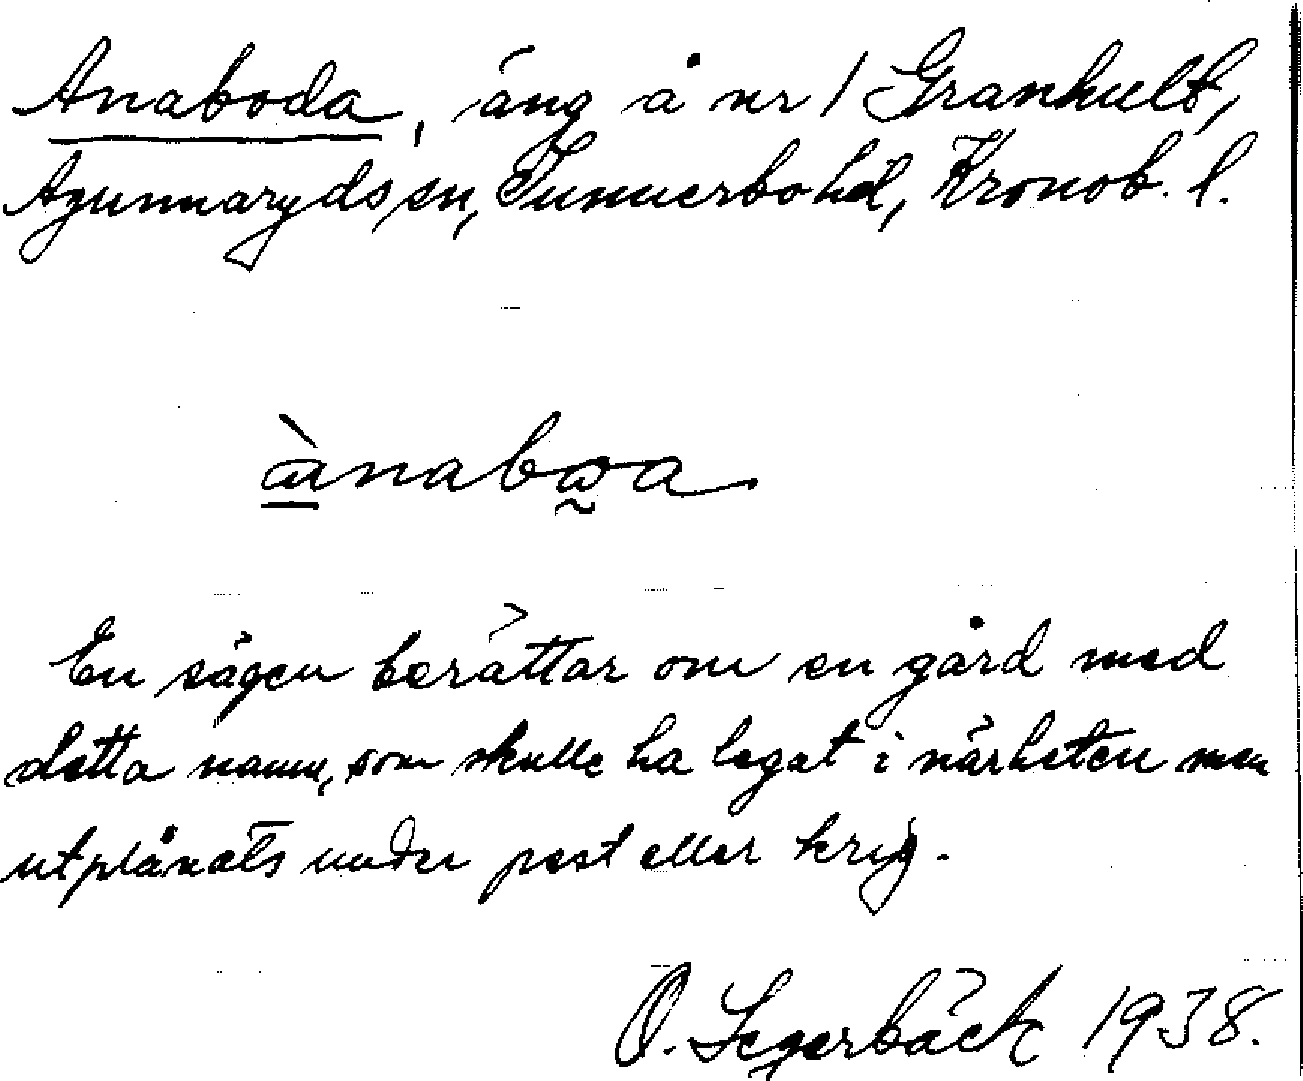 Anaboda, äng å nr 1 Granhult,
Agunnaryds sn, Sunnerbo hd, Kronob. l.
ànaboa.
En sägen berättar om en gård med
detta namn, som skulle ha legat i närheten men
utplånats under pest eller krig.
O. Segerbäck 1938.